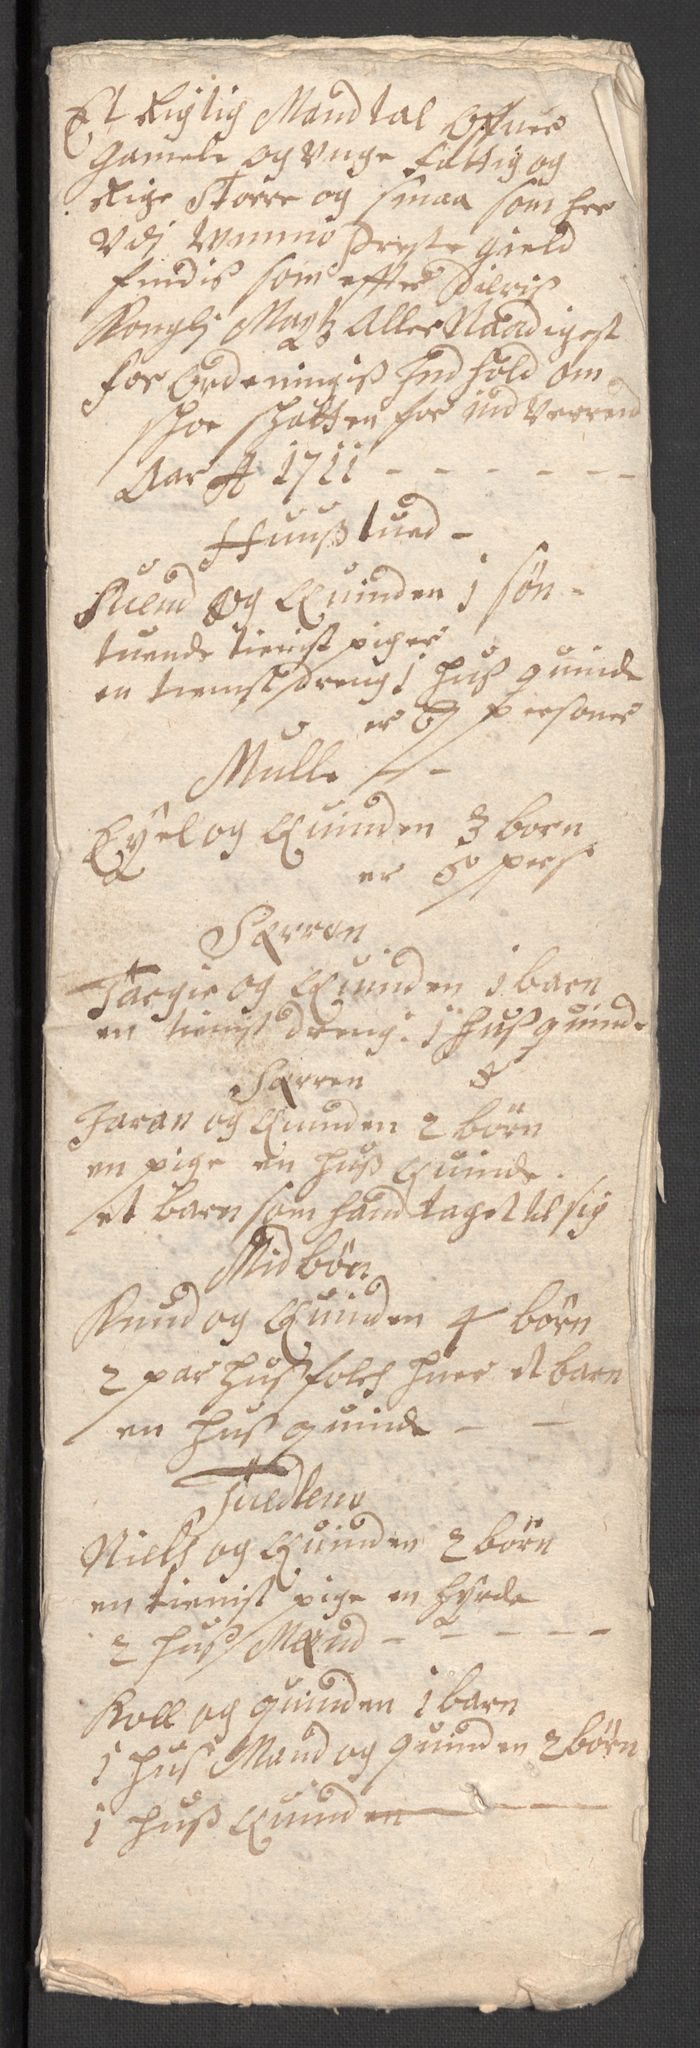 Et Rigtig Mandtal Offuer
gamele og Vnge fattig og
Rige Større og smaa som her
Vdj Winnio Preste gield
findis som effter Deris
Konglj Maytz Aller Naadigest
for Ordeningiß Jndhold om
schoe schatten for indVerrend
Aar A 1711 - - - - - -
Huußtued -
Suend og Quinden 1 søn -
tuende tienist piger
en tienist dreng 1 huß quinde
er 7 personer
Mulle - -
Eyel og Quinden 3 born
er 5 pers
Sarren
Targie og Quinden 1 barn
en tienist dreng 1 huß quinde
Sarren
Jaran og Quinden 2 børn
en pige en huß Quinde.
et barn som hand taget til sig
Midbøn
Knud og Quinden 4 børn
2 par huß folch huer et barn
en huß quinde - -
Tuedtene
Niels og Quinden 2 børn
en tienist pige en hyrde
2 huß Mænd - - - - -
Roll og quinden 1 barn
1 huß Mand og quinden 2 børn
1 huß Quinden